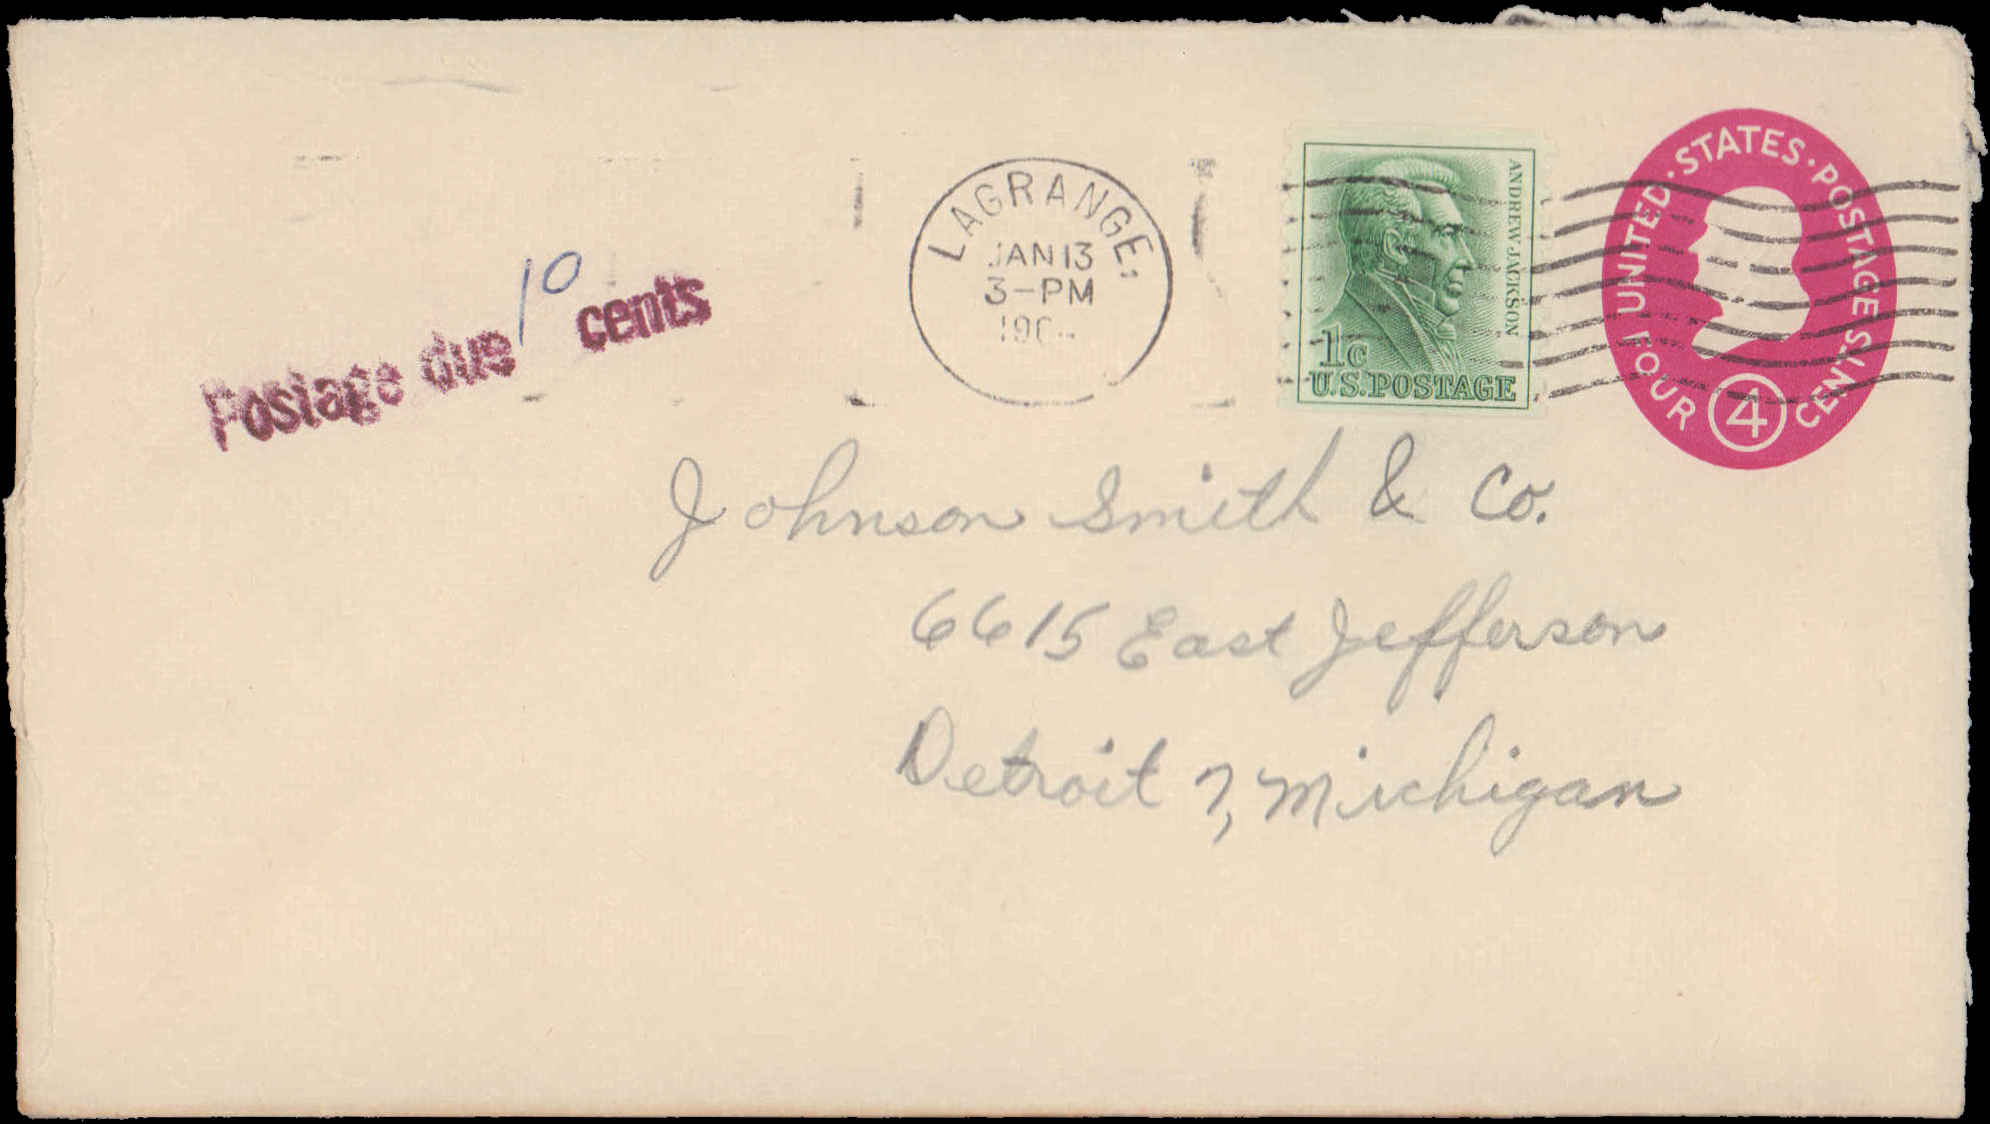 UNITED · STATES · POSTAGE
FOUR 4 CENTS
ANDREW JACKSON
1c
U.S. POSTAGE
LAGRANGE
JAN 13
3-PM
Postage due 10 cents
Johnson Smith & Co.
6615 East Jefferson
Detroit 7, Michigan